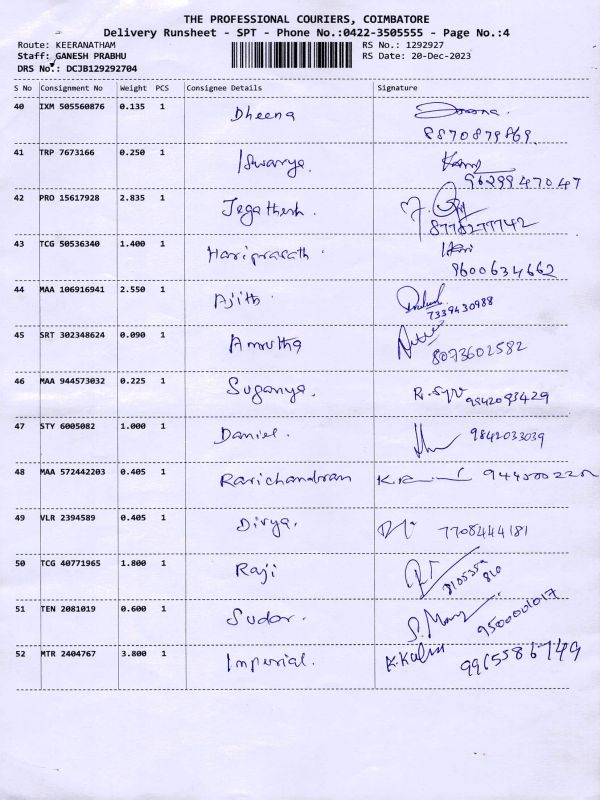 THE PROFESSIONAL COURIERS, COIMBATORE
Delivery Runsheet - SPT - Phone No.:0422-3505555 - Page No.:4
Route: KEERANATHAM RS No.: 1292927
Staff: GANESH PRABHU RS Date: 20-Dec-2023
DRS No.: DCJB129292704
S No Consignment No Weight PCS Consignee Details Signature
40 IXM 505560876 0.135 1 Dheena
8870879869.
41 TRP 7673166 0.250 1 Iswarya.
9629947047
42 PRO 15617928 2.835 1 Jegathesh.
8778277742
43 TCG 50536340 1.400 1 Hariprasath. Hari
9600634662
44 MAA 106916941 2.550 1 Ajith.
7339430988
45 SRT 302348624 0.090 1 Amrutha
8073602582
46 MAA 944573032 0.225 1 Suganya. 9842093429
47 STY 6005082 1.000 1 Daniel. 9842033039
48 MAA 572442203 0.405 1 Ravichandran
49 VLR 2394589 0.405 1 Divya. 7708444181
50 TCG 40771965 1.800 1 Raji
8105352
810
51 TEN 2081019 0.600 1 Sudar. 9500001017
52 MTR 2404767 3.800 1 Imperial. 9965586749